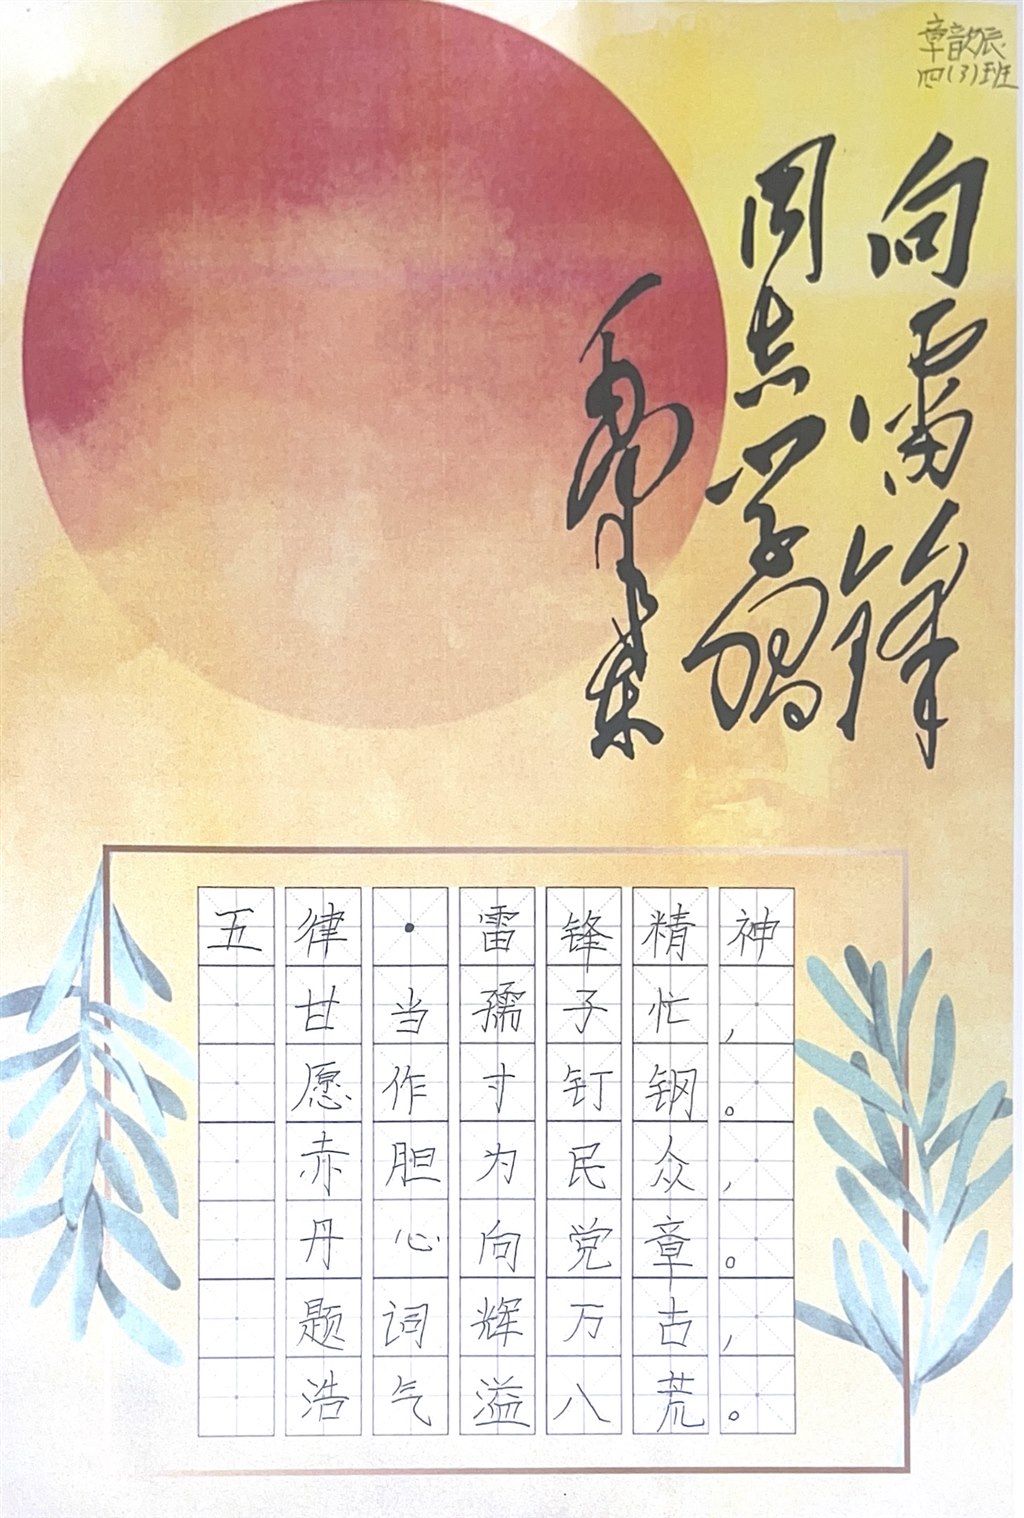 章歆辰
四(3)班
向雷锋
同志学习
毛泽东
五律·雷锋精神
甘当孺子忙，
愿作寸钉钢。
赤胆为民众，
丹心向党章。
题词辉万古，
浩气溢八荒。